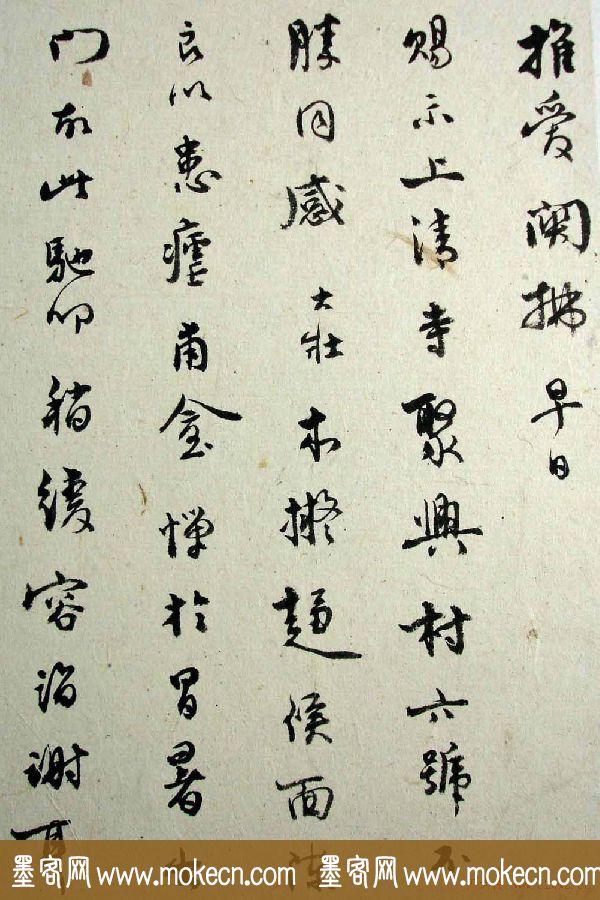 推愛闕 早日
賜示上清寺聚興村六號
勝同感 大壯本擬趨候面
良以患瘧甫 憚於冒暑
門故此馳仰稍緩容詣謝耳
墨客网 www.mokecn.com 墨客网 www.mokecn.com